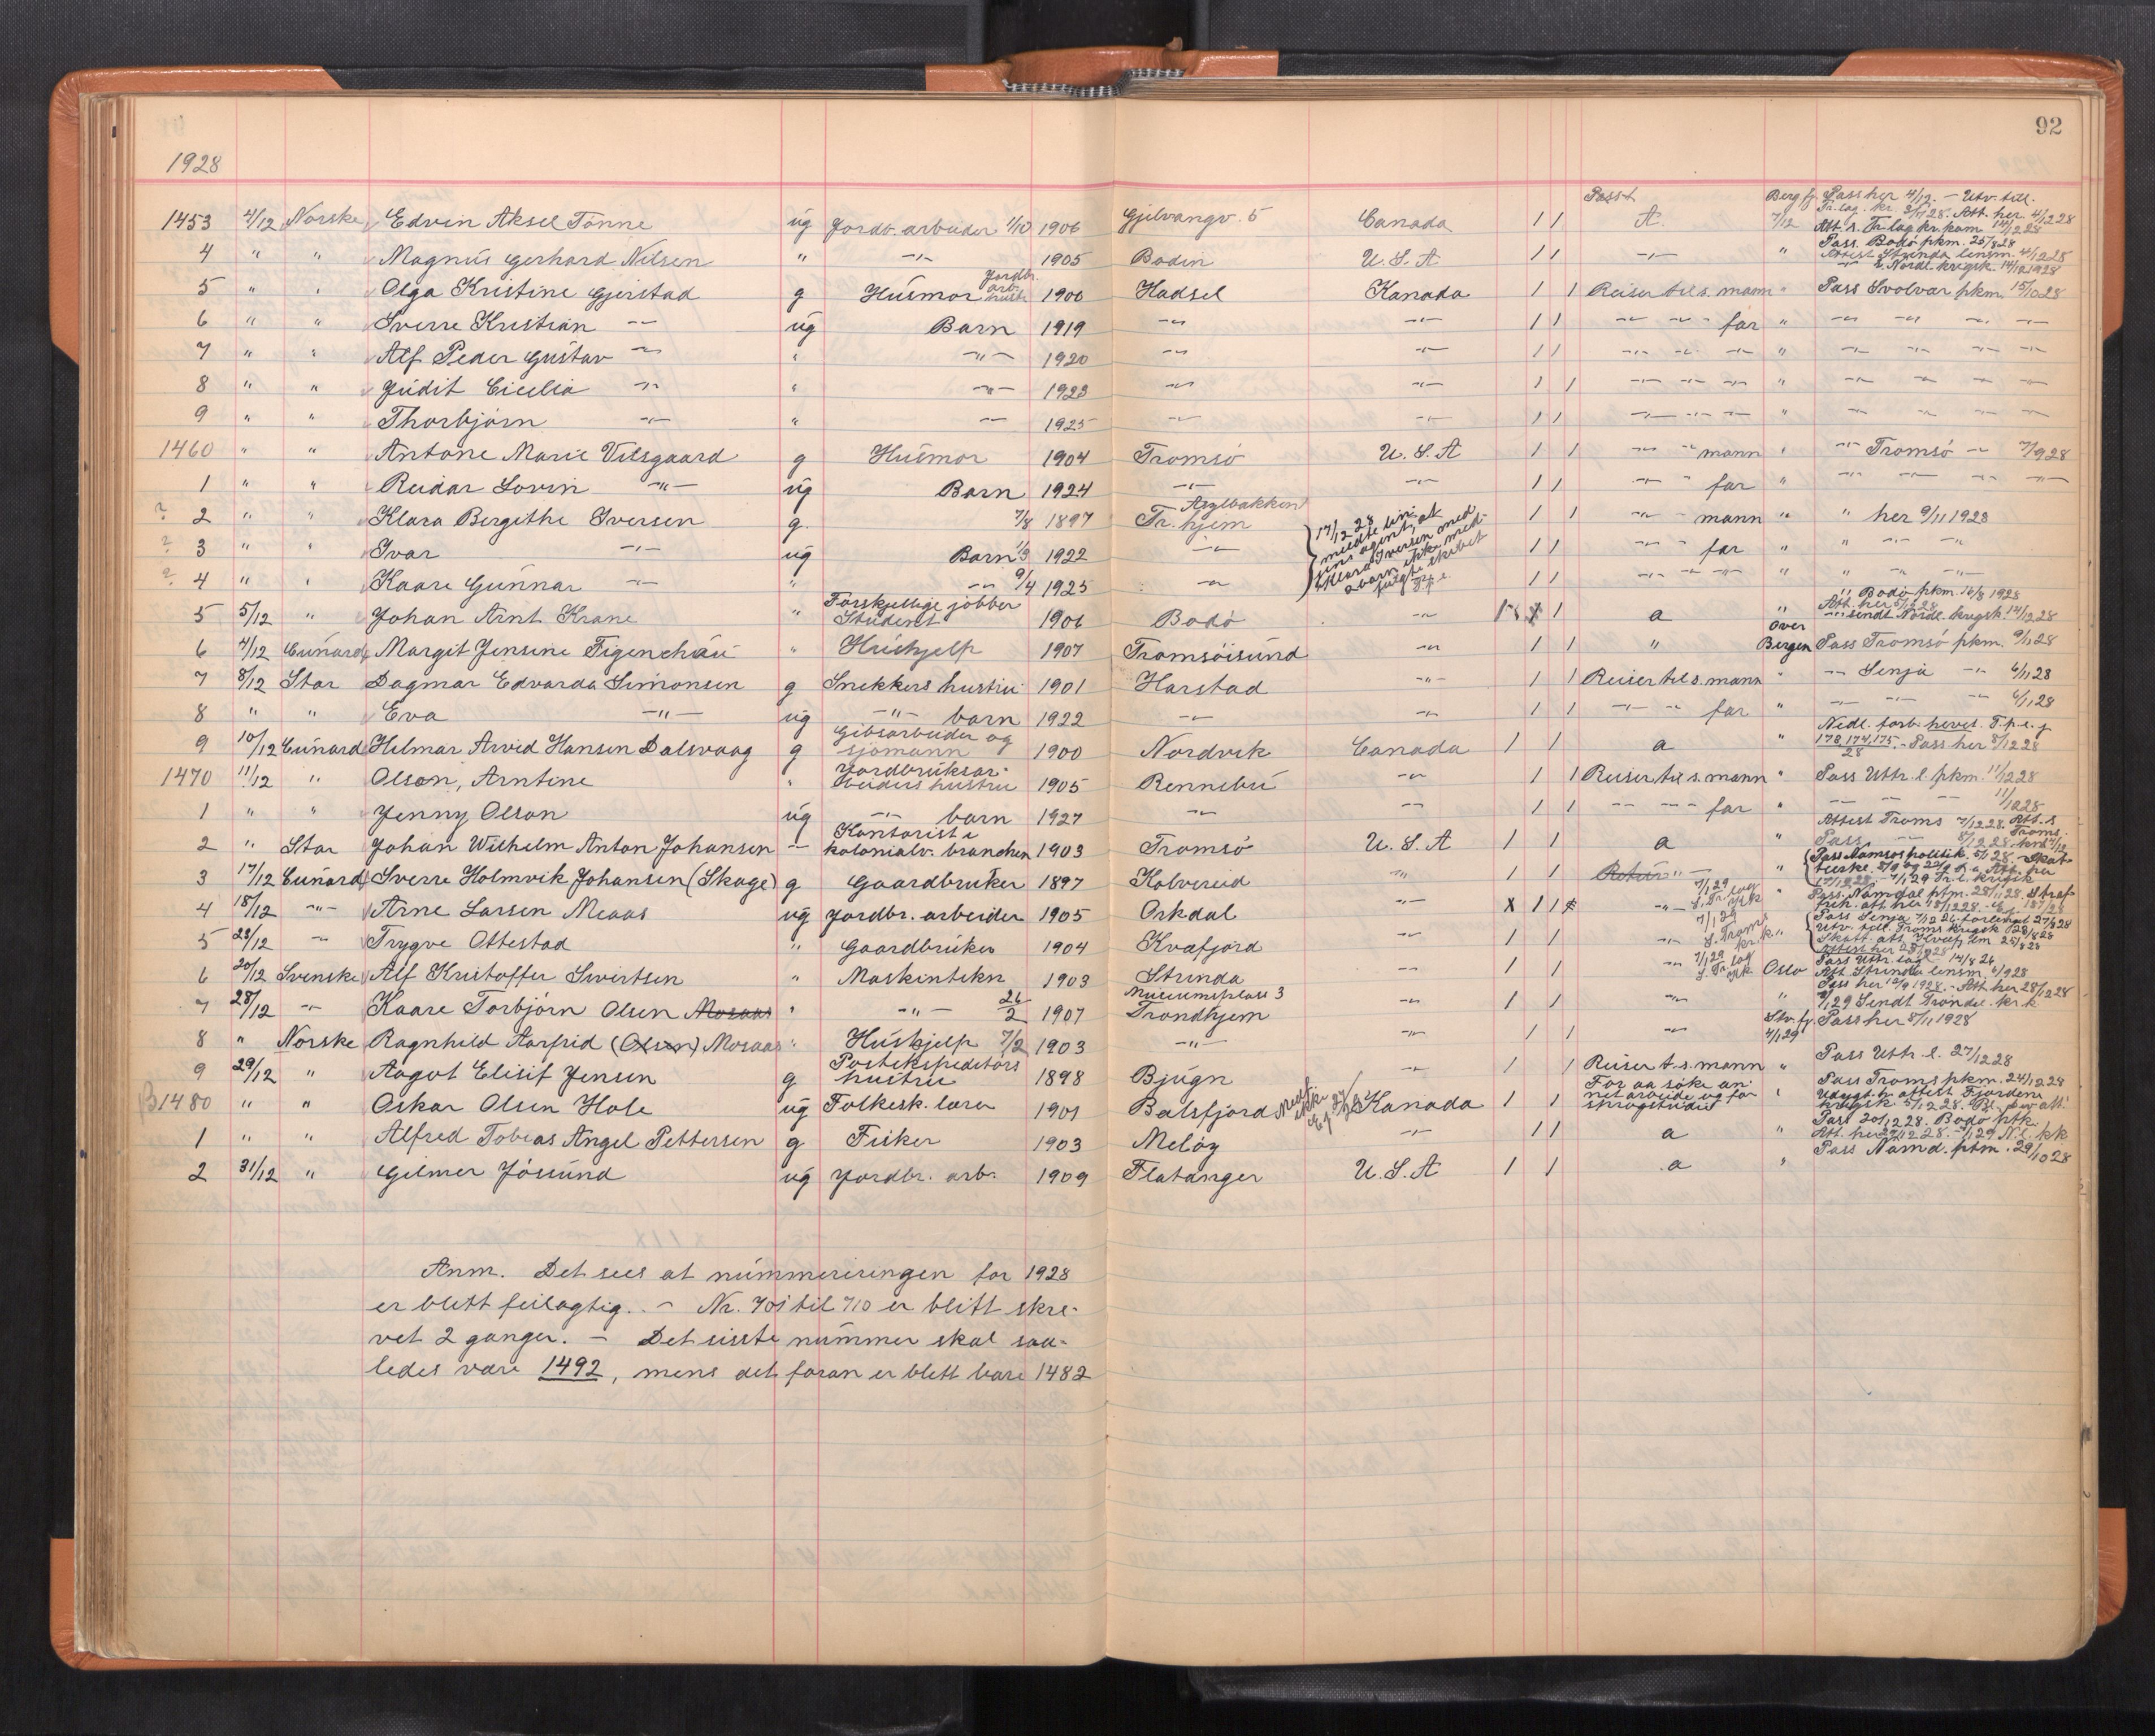 92
1928
Passt
1453 4/12 Norske Edvin Aksel Tønne ug Jordb. arbeider 1/10 1906 Gjelvangv. 5 Canada 1 1 A. Berg fj 7/12 Pass her 4/12. - Utv. till. Tr.lag. kr. 2/11 28. Att. her. 4/12 28 Att. s. Tr.lag kr.kom 14/12 28
4 " " Magnus Gerhard Nilsen " -"- 1905 Bodin U.S.A 1 1 -"- " Pass. Bodø pkm. 25/8 28 Attest Strinda lensm. 4/12 28 -"- s. Nordl. krigsk. 14/12 1928
5 " " Olga Kristine Gjerstad g Husmor Jordbr. arb. hustr. 1900 Hadsel Kanada 1 1 Reiser til s. mann " Pass Svolvær pkm. 15/10 28
6 " " Sverre Kristian -"- ug Barn 1919 -"- -"- 1 1 -"- -"- " far " -"- -"- -"- -"-
7 " " Alf Peder Gustav -"- " -"- 1920 -"- -"- 1 1 -"- -"- -"- " -"- -"- -"- -"-
8 " " Judit Cicilia -"- " -"- 1923 -"- -"- 1 1 -"- -"- -"- " -"- -"- -"- -"-
9 " " Thorbjørn -"- " -"- 1925 -"- -"- 1 1 -"- -"- -"- " -"- -"- -"- -"-
1460 " " Antone Marie Vilsgaard g Husmor 1904 Tromsø U.S.A 1 1 -"- -"- mann " -"- Tromsø -"- 7/9 28
1 " " Reidar Lovin -"- ug Barn 1924 -"- -"- 1 1 -"- " far " -"- -"- -"- -"-
? 2 " " Klara Bergithe Iversen g. 7/8 1897 Asylbakken Tr.hjem 1 1 -"- - mann " " her 9/11 1928
17/12 28 meldte lin- jens agent, at Klara Iversen med 2 barn ikke med- fulgte skibet T.p.e.
? 3 " " Ivar -"- ug Barn 1/3 1922 -"- 1 1 -"- " far " " -"- -"-
? 4 " " Kaare Gunnar -"- " -"- 9/4 1925 -"- 1 1 -"- -"- -"- " " -"- -"-
5 5/12 " Johan Arnt Krane " Forskjellige jobber Student 1906 Bodø -"- 1 a " " Bodø pkm. 16/8 1928 Att. her 5/12 28 -"- sendt Nordl. krigsk. 14/12 28
6 7/12 Cunard Margit Jensine Figenchau " Hushjelp 1907 Tromsøisund -"- 1 1 " over Bergen Pass Tromsø pkm. 9/11 28
7 8/12 Star Dagmar Edvarda Simonsen g Snekkers hustru 1901 Harstad -"- 1 1 Reiser til s. mann " -"- Senja -"- 6/11 28
8 " " Eva -"- ug -"- barn 1922 -"- -"- 1 1 -"- -"- far " -"- -"- -"- 6/11 28
9 10/12 Cunard Hilmar Arvid Hansen Dalsvaag g Gibsarbeider og sjømann 1900 Nordvik Canada 1 1 a " Nedl. forb. hevet. T.p.e. j 178,174,175/28. - Pass her 8/12 28
1470 11/12 " Olson, Arntine " Jordbruksar- beiders hustru 1905 Rennebu -"- 1 1 Reiser til s. mann " Pass Uttr. l. pkm. 11/12 28
1 " " Jenny Olson ug -"- barn 1927 -"- -"- 1 1 -"- -"- - far " -"- -"- -"- 11/12 28
2 " Star Johan Wilhelm Anton Johansen -"- Kontorist i kolonialv. branchen 1903 Tromsø U.S.A 1 1 a " Attest Troms 7/12 28. Att. s Troms. Pass -"- 8/12 28 kr.k 14/12
3 17/12 Cunard Sverre Holmvik Johansen (Skage) g Gaardbruker 1897 Kolvereid -"- 1 1 Retur -"- " Pass Namsos politik. 5/1 28. - Skat- 17/12 28. - 7/1 29 Tr. l. krigsk
4 18/12 -"- Arne Larsen Meaas ug Jordbr. arbeider 1905 Orkdal -"- X 1 1 -"- 7/1 29 s. Tr. lag krsk " Pass. Namdal pkm. 28/11 28. Straf- frih. att. her 18/12 28.
5 28/12 -"- Trygve Ottestad " Gaardbruker 1904 Kvæfjord -"- 1 1 -"- 7/1 29 s. Troms kr.k " Pass Senja 7/12 26 forlenget 27/8 28 Utv. till. Troms krigsk 28/8 28 Skatt. att. Kvæfj lm 25/8 28 Attest her 28/12 28
6 20/12 Svenske Alf Kristoffer Sivertsen " Maskintekn 1903 Strinda -"- 1 1 -"- 7/1 29 s. Tr. lag krk Oslo Pass Uttr. lag 14/8 26 Att. Strinda lensm. 6/9 28
7 28/12 -"- Kaare Torbjørn Olsen Mosaas " -"- 26/2 1907 Museumsplass 3 Trondhjem -"- 1 1 -"- " Pass her 10/9 1928. - Att her 28/12 28 7/1 29 Sendt Trøndel. kr.k
8 " Norske Ragnhild Aasfrid (Olsen) Mosaas " Hushjelp 7/2 1903 -"- -"- 1 1 -"- Stv. fj. 4/1 29 Pass her 8/11 1928
9 29/12 " Aagot Elisif Jensen g Postekspeditørs hustru 1898 Bjugn -"- 1 1 Reiser t. s. mann " Pass Uttr. l. 27/12 28
B1480 " " Oskar Olsen Hole ug Folkesk. lærer 1901 Balsfjord Kanada 1 1 For aa søke an- net arbeide og for sprogstudie " Pass Troms pkm. 24/12 28
1 " " Alfred Tobias Angel Pettersen g Fisker 1903 Meløy -"- 1 1 a " Pass 20/12 28. Bodø ptk. Att. her 29/12 28. - 7/1 29 N.l. kk
2 31/12 " Gilmer Jøssund ug Jordbr. arb. 1909 Flatanger U.S.A 1 1 a " Pass Namd. pkm. 29/10 28
Anm. Det sees at nummereringen for 1928
er blitt feilagtig. - Nr. 701 til 710 er blitt skre-
vet 2 ganger. - Det siste nummer skal saa-
ledes være 1492, mens det foran er blitt bare 1482